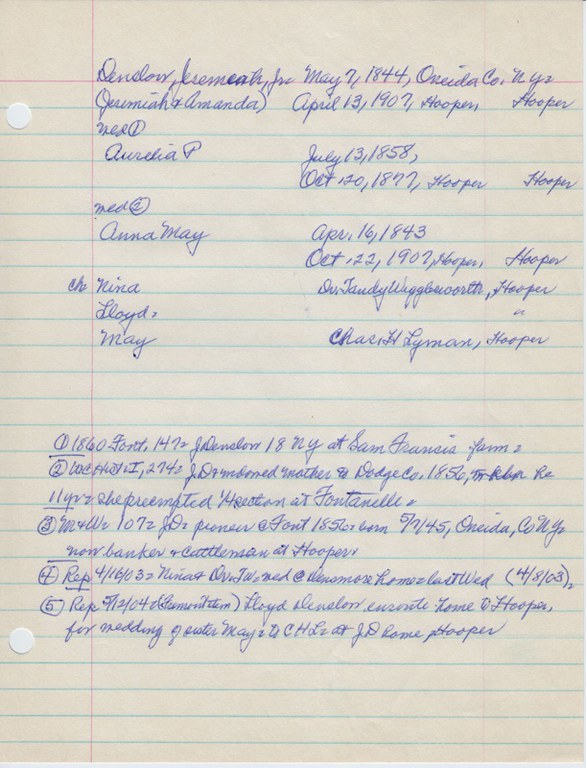 Denslow, Jeremeah, Jr. May 7, 1844, Oneida Co. Ny=
(Jeremiah & Amanda) April 13, 1907, Hooper, Hooper
med ①
Aurelia P July 13, 1858,
Oct. 20, 1877, Hooper Hooper
med ②
Anna May Apr. 16, 1843
Oct. 22, 1907, Hooper, Hooper
ch Nina Dr. Tandy Wigglesworth, Hooper
Lloyd= "
May Chas. H Lyman, Hooper
① 1860 Font. 147= J Denslow 18 NY at Sam Francis farm=
② 274= JD & widowed mother to Dodge Co. 1856,
11 yr= she preempted 1/4 section at Fontanelle=
③ M&W= 107= JD= pioneer @ Font 1856= born 5/7/45, Oneida, Co NY=
now banker & cattleman at Hooper.
④ Rep 4/16/03= Nina & Dr. TW med @ home= last Wed (4/8/03)=
⑤ Rep Lloyd Denslow enroute home to Hooper,
for wedding of sister May= to CHL= at JD home Hooper